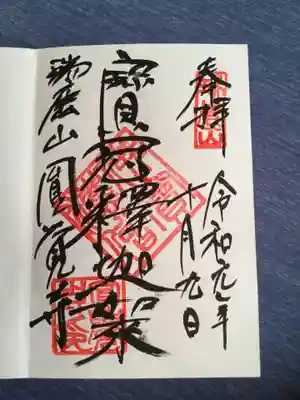 奉拝
令和元年
十月九日
寳冠釋迦如来
瑞鹿山圓覚寺